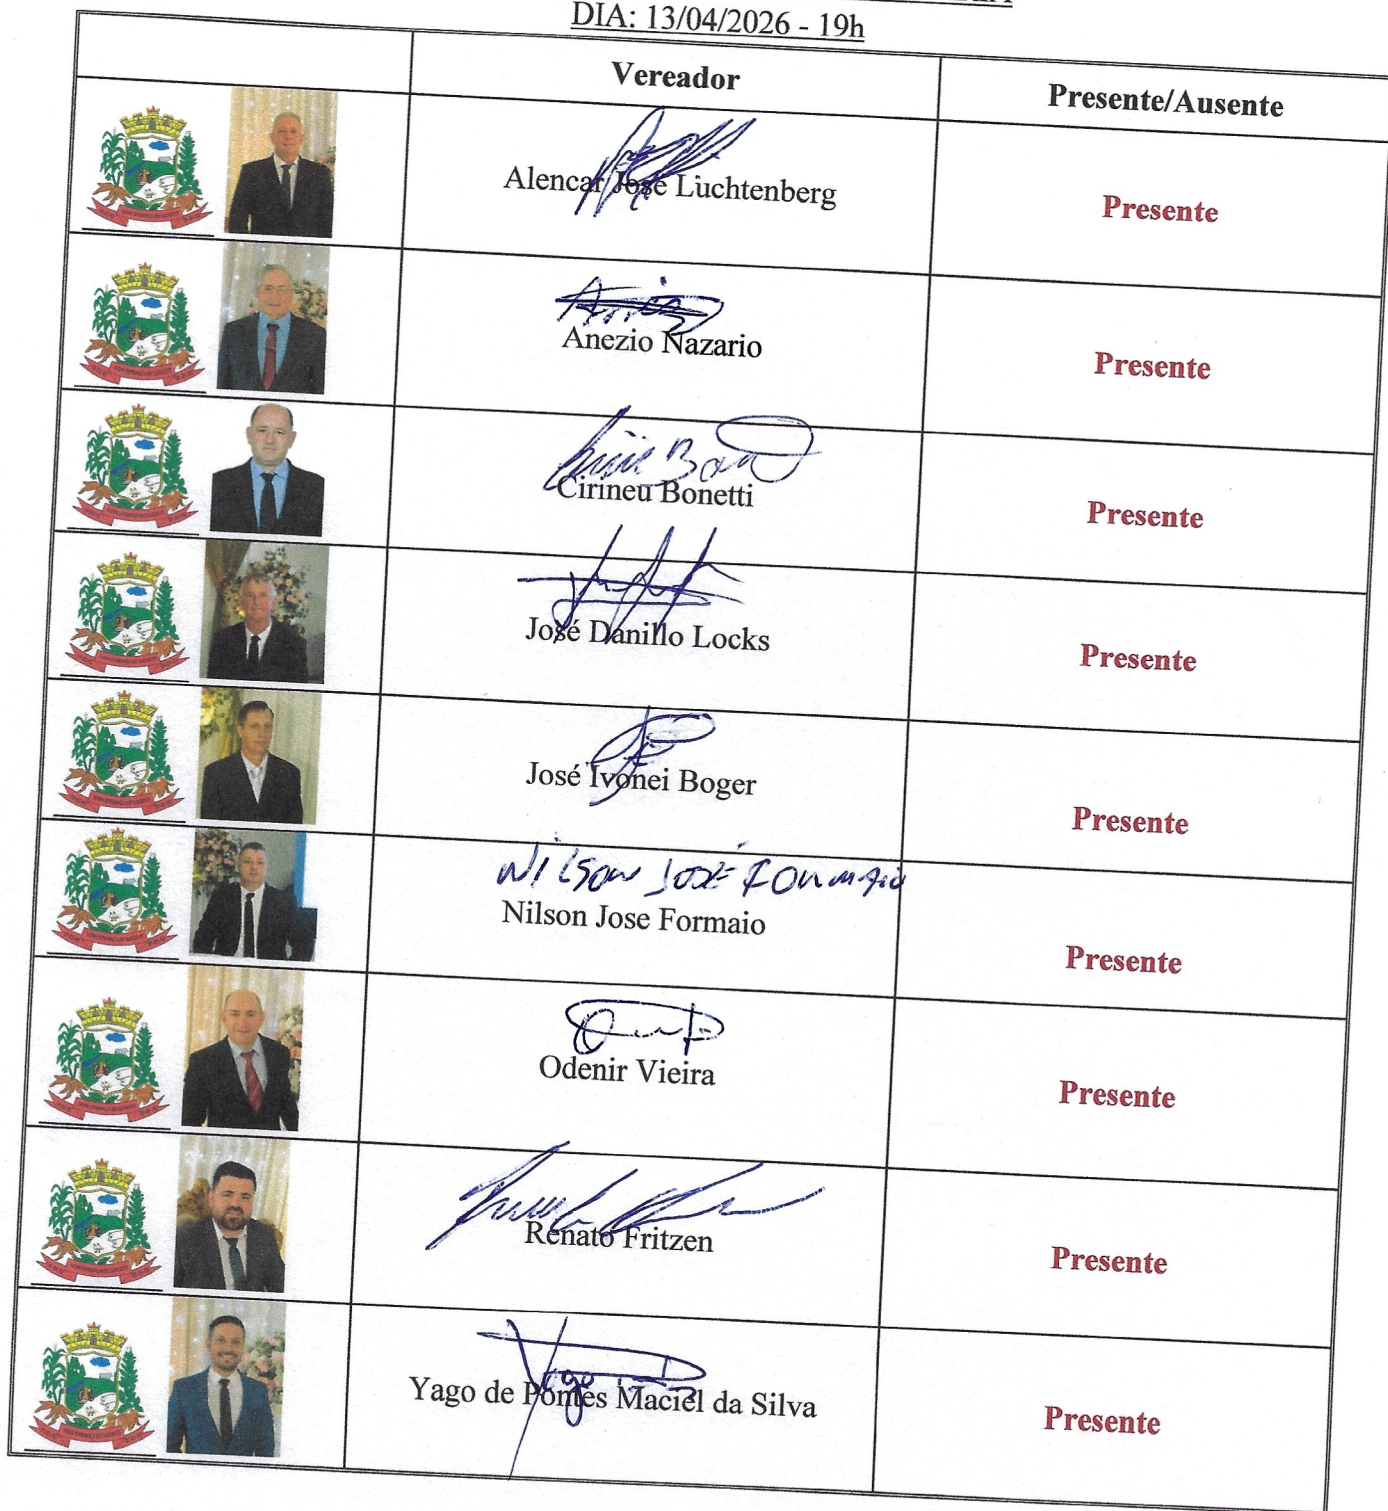 DIA: 13/04/2026 - 19h
Vereador
Presente/Ausente
Alencar José Luchtenberg
Presente
Anezio Nazario
Presente
Cirineu Bonetti
Presente
José Danillo Locks
Presente
José Ivonei Boger
Presente
Nilson José Formaio
Nilson Jose Formaio
Presente
Odenir Vieira
Presente
Renato Fritzen
Presente
Yago de Pontes Maciel da Silva
Presente